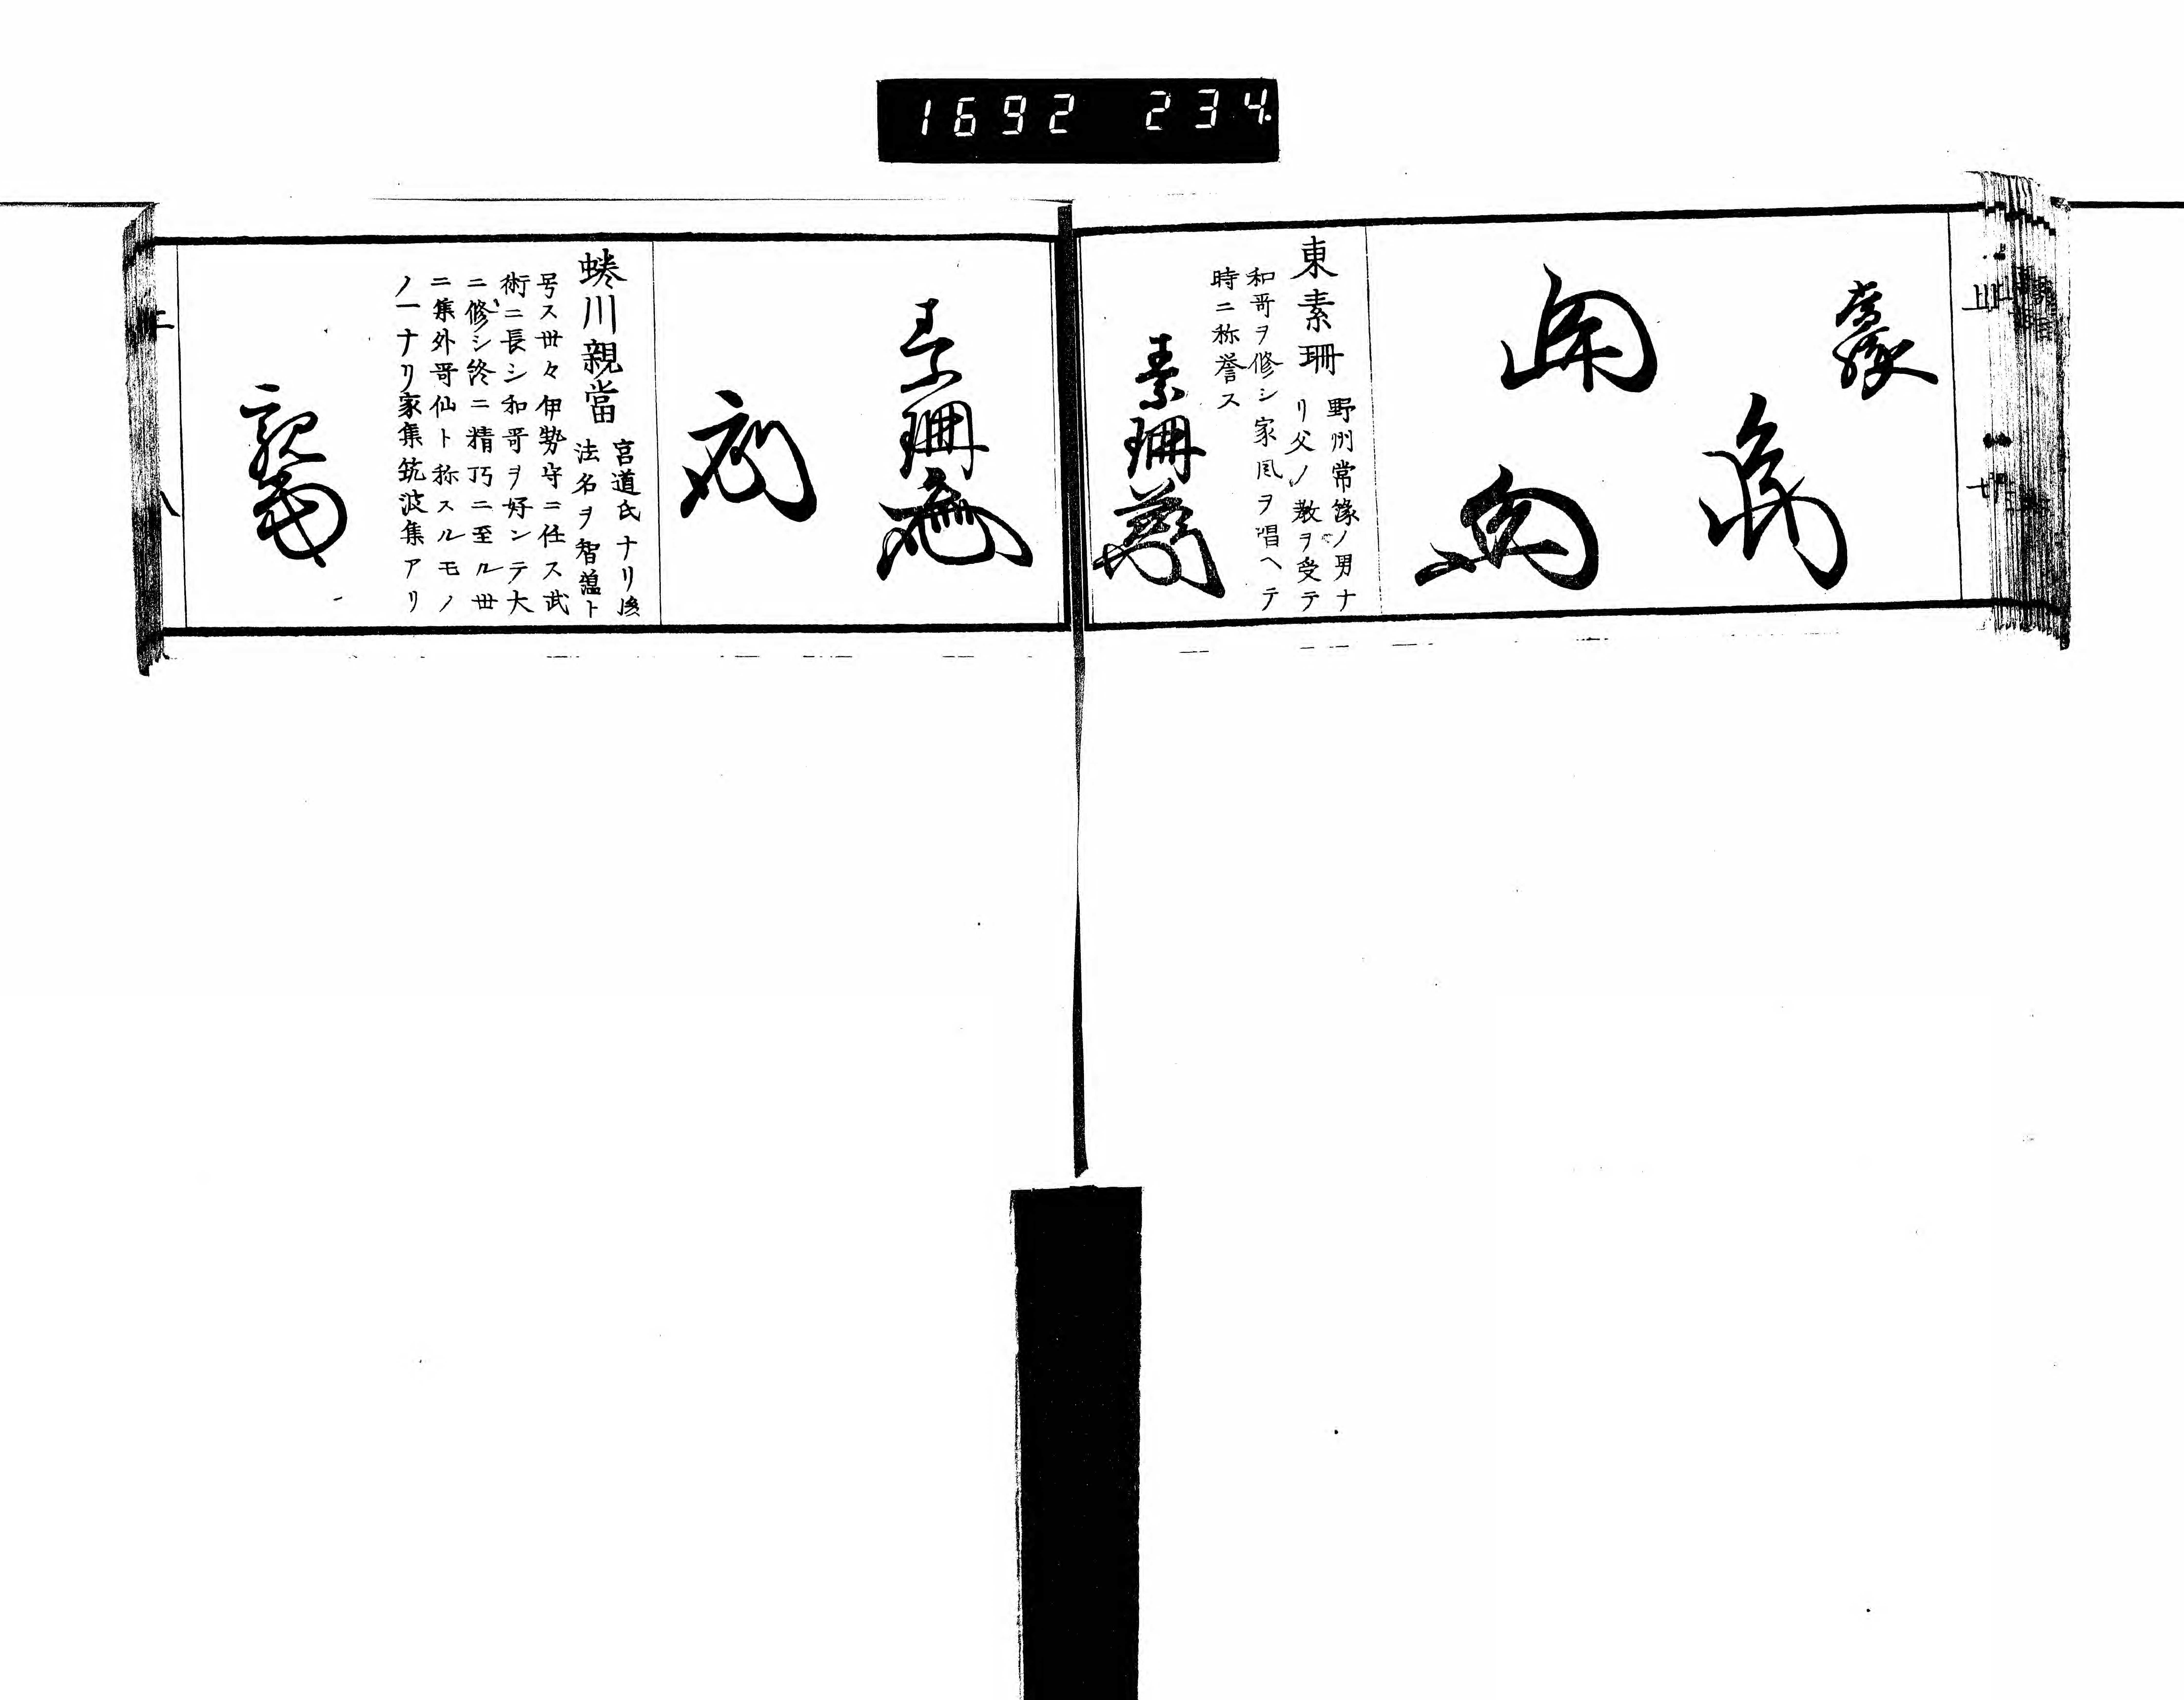 1692 234.
東素珊
野州常縁ノ男ナ
リ父ノ教ヲ受テ
和哥ヲ修シ家風ヲ唱ヘテ
時ニ称誉ス
素珊
素珊
蜷川親當
宮道氏ナリ後
法名ヲ智薀ト
号ス丗々伊勢守ニ任ス武
術ニ長シ和哥ヲ好ンテ大
ニ修シ終ニ精巧ニ至ル丗
ニ集外哥仙ト称スルモノ
ノ一ナリ家集筑波集アリ
親當